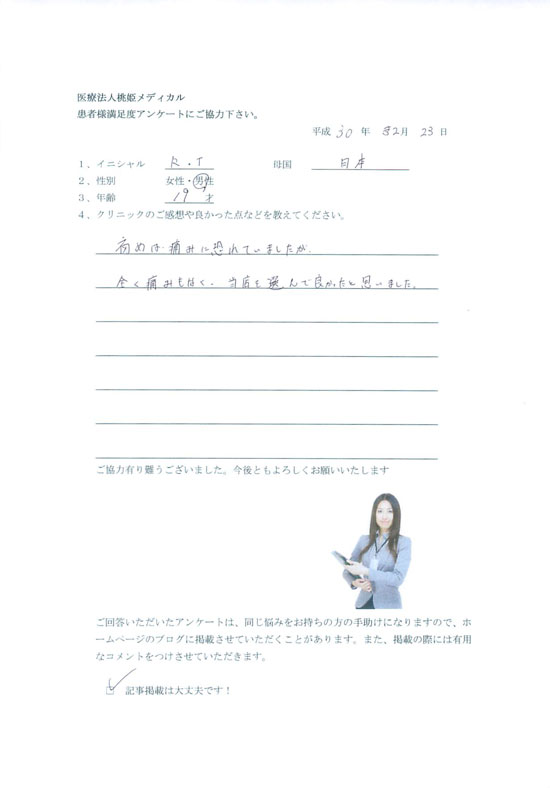 医療法人桃姫メディカル
患者様満足度アンケートにご協力下さい。
平成 30 年 2月 23 日
1、イニシャル R.T 母国 日本
2、性別 女性・男性
3、年齢 19 才
4、クリニックのご感想や良かった点などを教えてください。
めは痛みに恐れていましたが、
全く痛みもなく、当店を選んで良かったと思いました。
ご協力有り難うございました。今後ともよろしくお願いいたします
ご回答いただいたアンケートは、同じ悩みをお持ちの方の手助けになりますので、ホ
ームページのブログに掲載させていただくことがあります。また、掲載の際には有用
なコメントをつけさせていただきます。
記事掲載は大丈夫です！